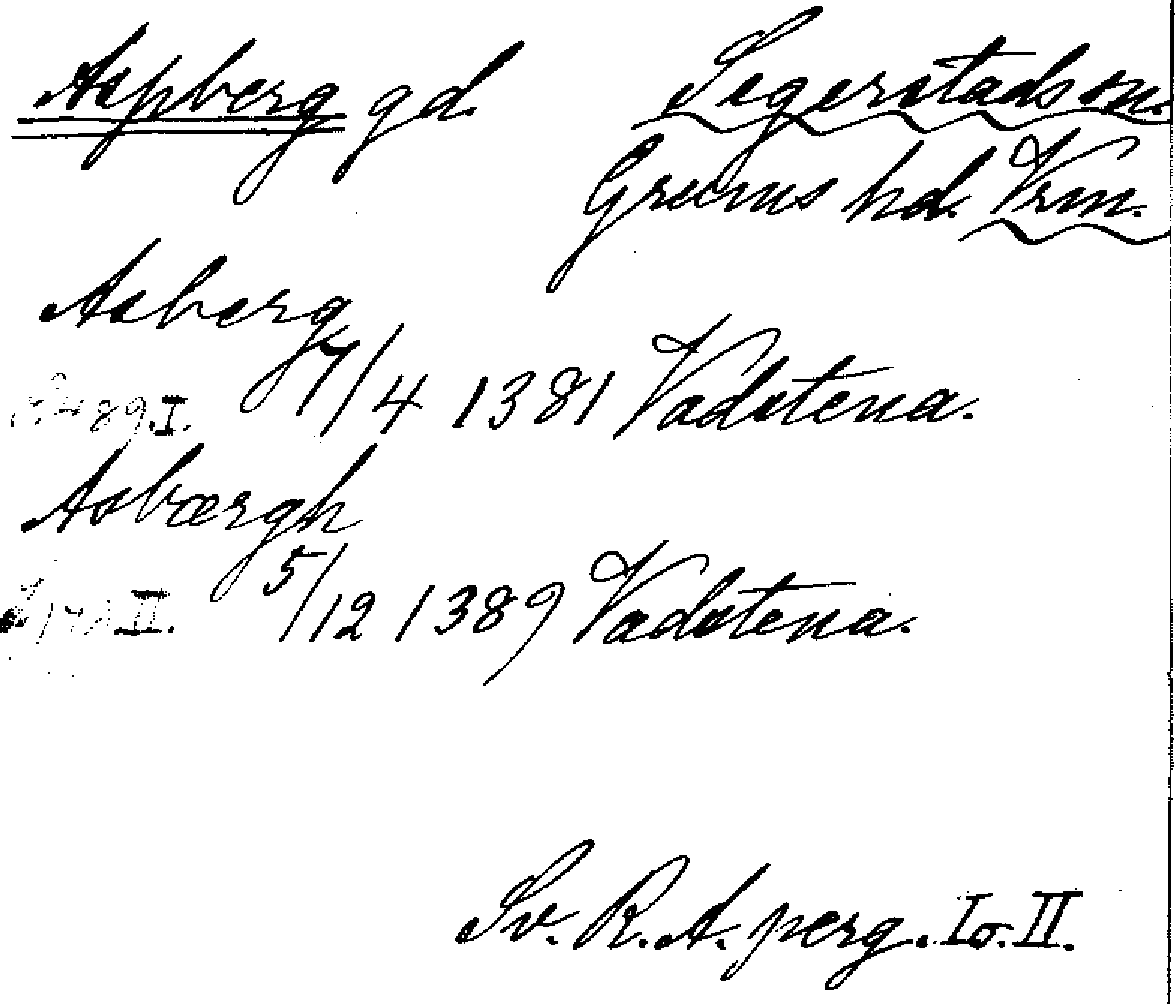 Aspberg gd. Segerstads sn.
Grums hd. Vrm.
Asberg
7/4 1381 Vadstena.
I.
Asbærgh
5/12 1389 Vadstena.
II.
Sv. R. A. perg. I o. II.